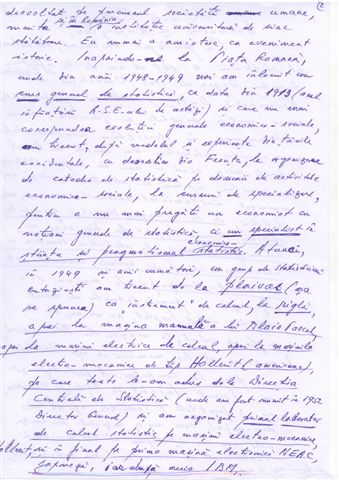 2
dezvoltat de progresul societății umane,
menită și în România o instituție universitară de sine
stătătoare. Eu numai a amintesc, ca eveniment
istoric. Înapoindu-ne la Piața Romană,
unde din anii 1948-1949 noi am înlocuit un
curs general de statistică, ce data din 1913 (anul
înființării A.S.E.-ului de astăzi) și care nu mai
corespundea evoluției generale economico-sociale,
am trecut, după modelul și experiența din țările
occidentale, cu deosebire din Franța, la organizarea
de catedre de statistică pe domenii de activitate
economico-sociale, la cursuri de specializare,
pentru a nu mai pregăti un economist cu
noțiuni generale de statistică, ci un specialist în
știința și pragmatismul economico-statistic. Atunci,
în 1949 și anii următori, un grup de statisticieni
entuziaști am trecut de la plaivas (așa
se spunea) ca "instrument" de calcul, la riglă,
apoi la mașina manuală a lui Blaise Pascal,
apoi la mașini electrice de calcul, apoi la mașinile
electro-mecanice de tip Hollerit (americane),
pe care toate le-am adus de la Direcția
Centrală de Statistică (unde am fost numit în 1952
Director General) și am organizat primul laborator
de calcul statistic pe mașini electro-mecanice,
Hollerit, și în final pe prima mașină electronică NEAC,
japoneză, iar după aceea IBM.